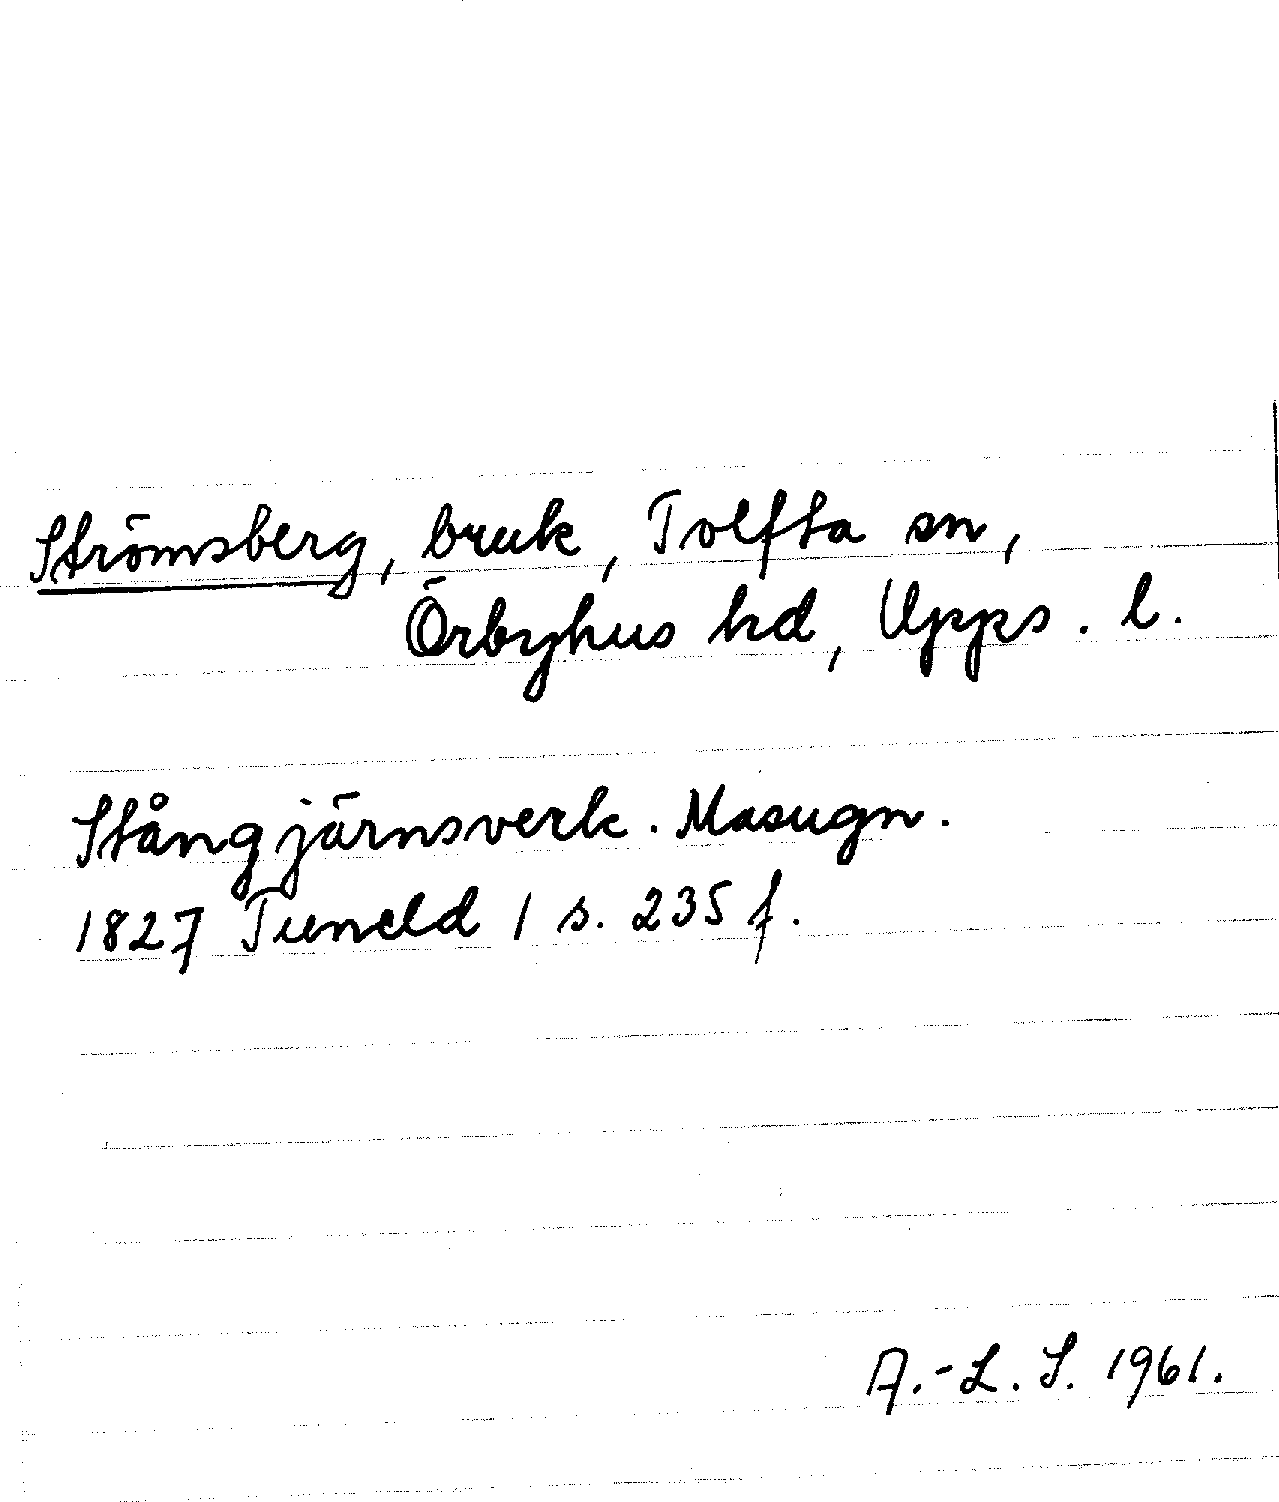 Strömsberg, bruk, Tolfta sn,
Örbyhus hd, Upps. l.
Stångjärnsverk. Masugn.
1827 Tuneld 1 s. 235 f.
A.-L. S. 1961.